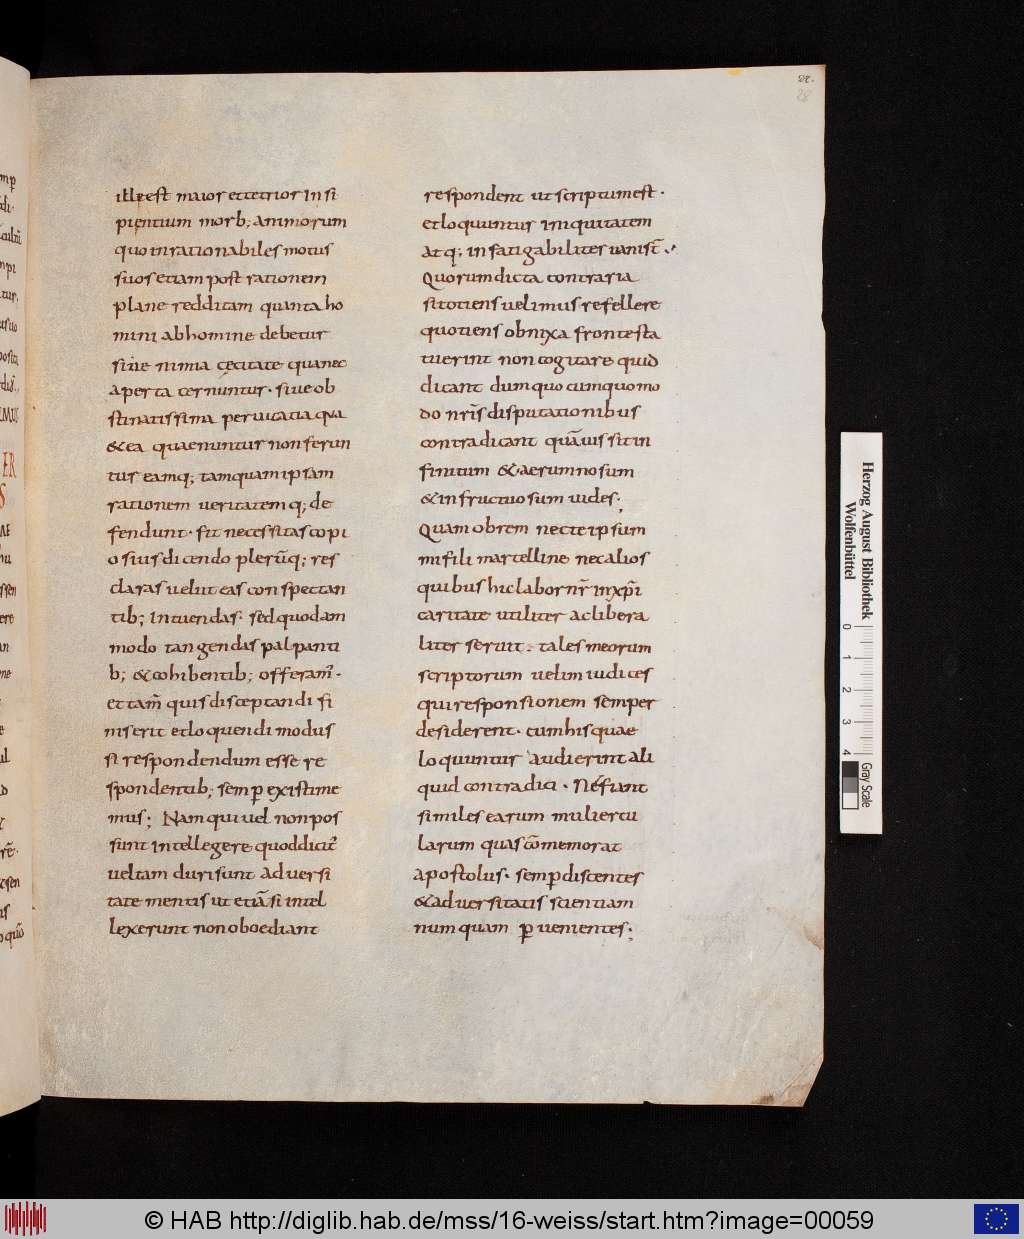 28
ille est maior et tetrior insi
pientium morb; animorum
quo inrationabiles motus
suos etiam post rationem
plane redditam quanta ho
mini abhomine debetur
siue nimia cęcitate qua nec
aperta cernuntur. siue ob
stinatissima peruicatia qua
& ea quae nuntur non ferun
tur eamq; tamquam ipsam
rationem ueritatemq; de
fendunt. fit necessitas copi
osius dicendo plerūq; res
claras uelut eas conspectan
tib; intuendas. sed quodam
modo tangendas palpanti
b; & cohibentib; offeram̃.
et tam̃ quis disceptandi fi
nis erit et loquendi modus
si respondendum esse re
spondentib; semp existime
mus; Nam qui uel non pos
sunt intellegere quod dicit̃
uel tam duri sunt aduersi
tate mentis ut etiā si intel
lexerunt non oboediant
respondent ut scriptum est.
et loquuntur iniquitatem
atq; infatigabiliter uani st̃.
Quorum dicta contraria
si totiens uelimus refellere
quotiens obnixa fronte sta
tuerint non cogitare quid
dicant dum quocumquo mo
do nr̃is disputationibus
contradicant quā uis sit in
finitum & aerumnosum
& infructuosum uides;
Quam obrem nec te ipsum
mi fili marcelline nec alios
quibus hic labor nr̃ in xp̃i
caritate utiliter ac libera
liter seruit. tales meorum
scriptorum uelim iudices
qui responsionem semper
desiderent. cum his quae
loquuntur audierint ali
quid contradici. Ne fiant
similes earum muliercu
larum quas cōmemorat
apostolus. semp discentes
& ad uersitatis scientiam
numquam p uenientes;
Herzog August Bibliothek
Wolfenbüttel
0 1 2 3 4
Gray Scale
© HAB http://diglib.hab.de/mss/16-weiss/start.htm?image=00059